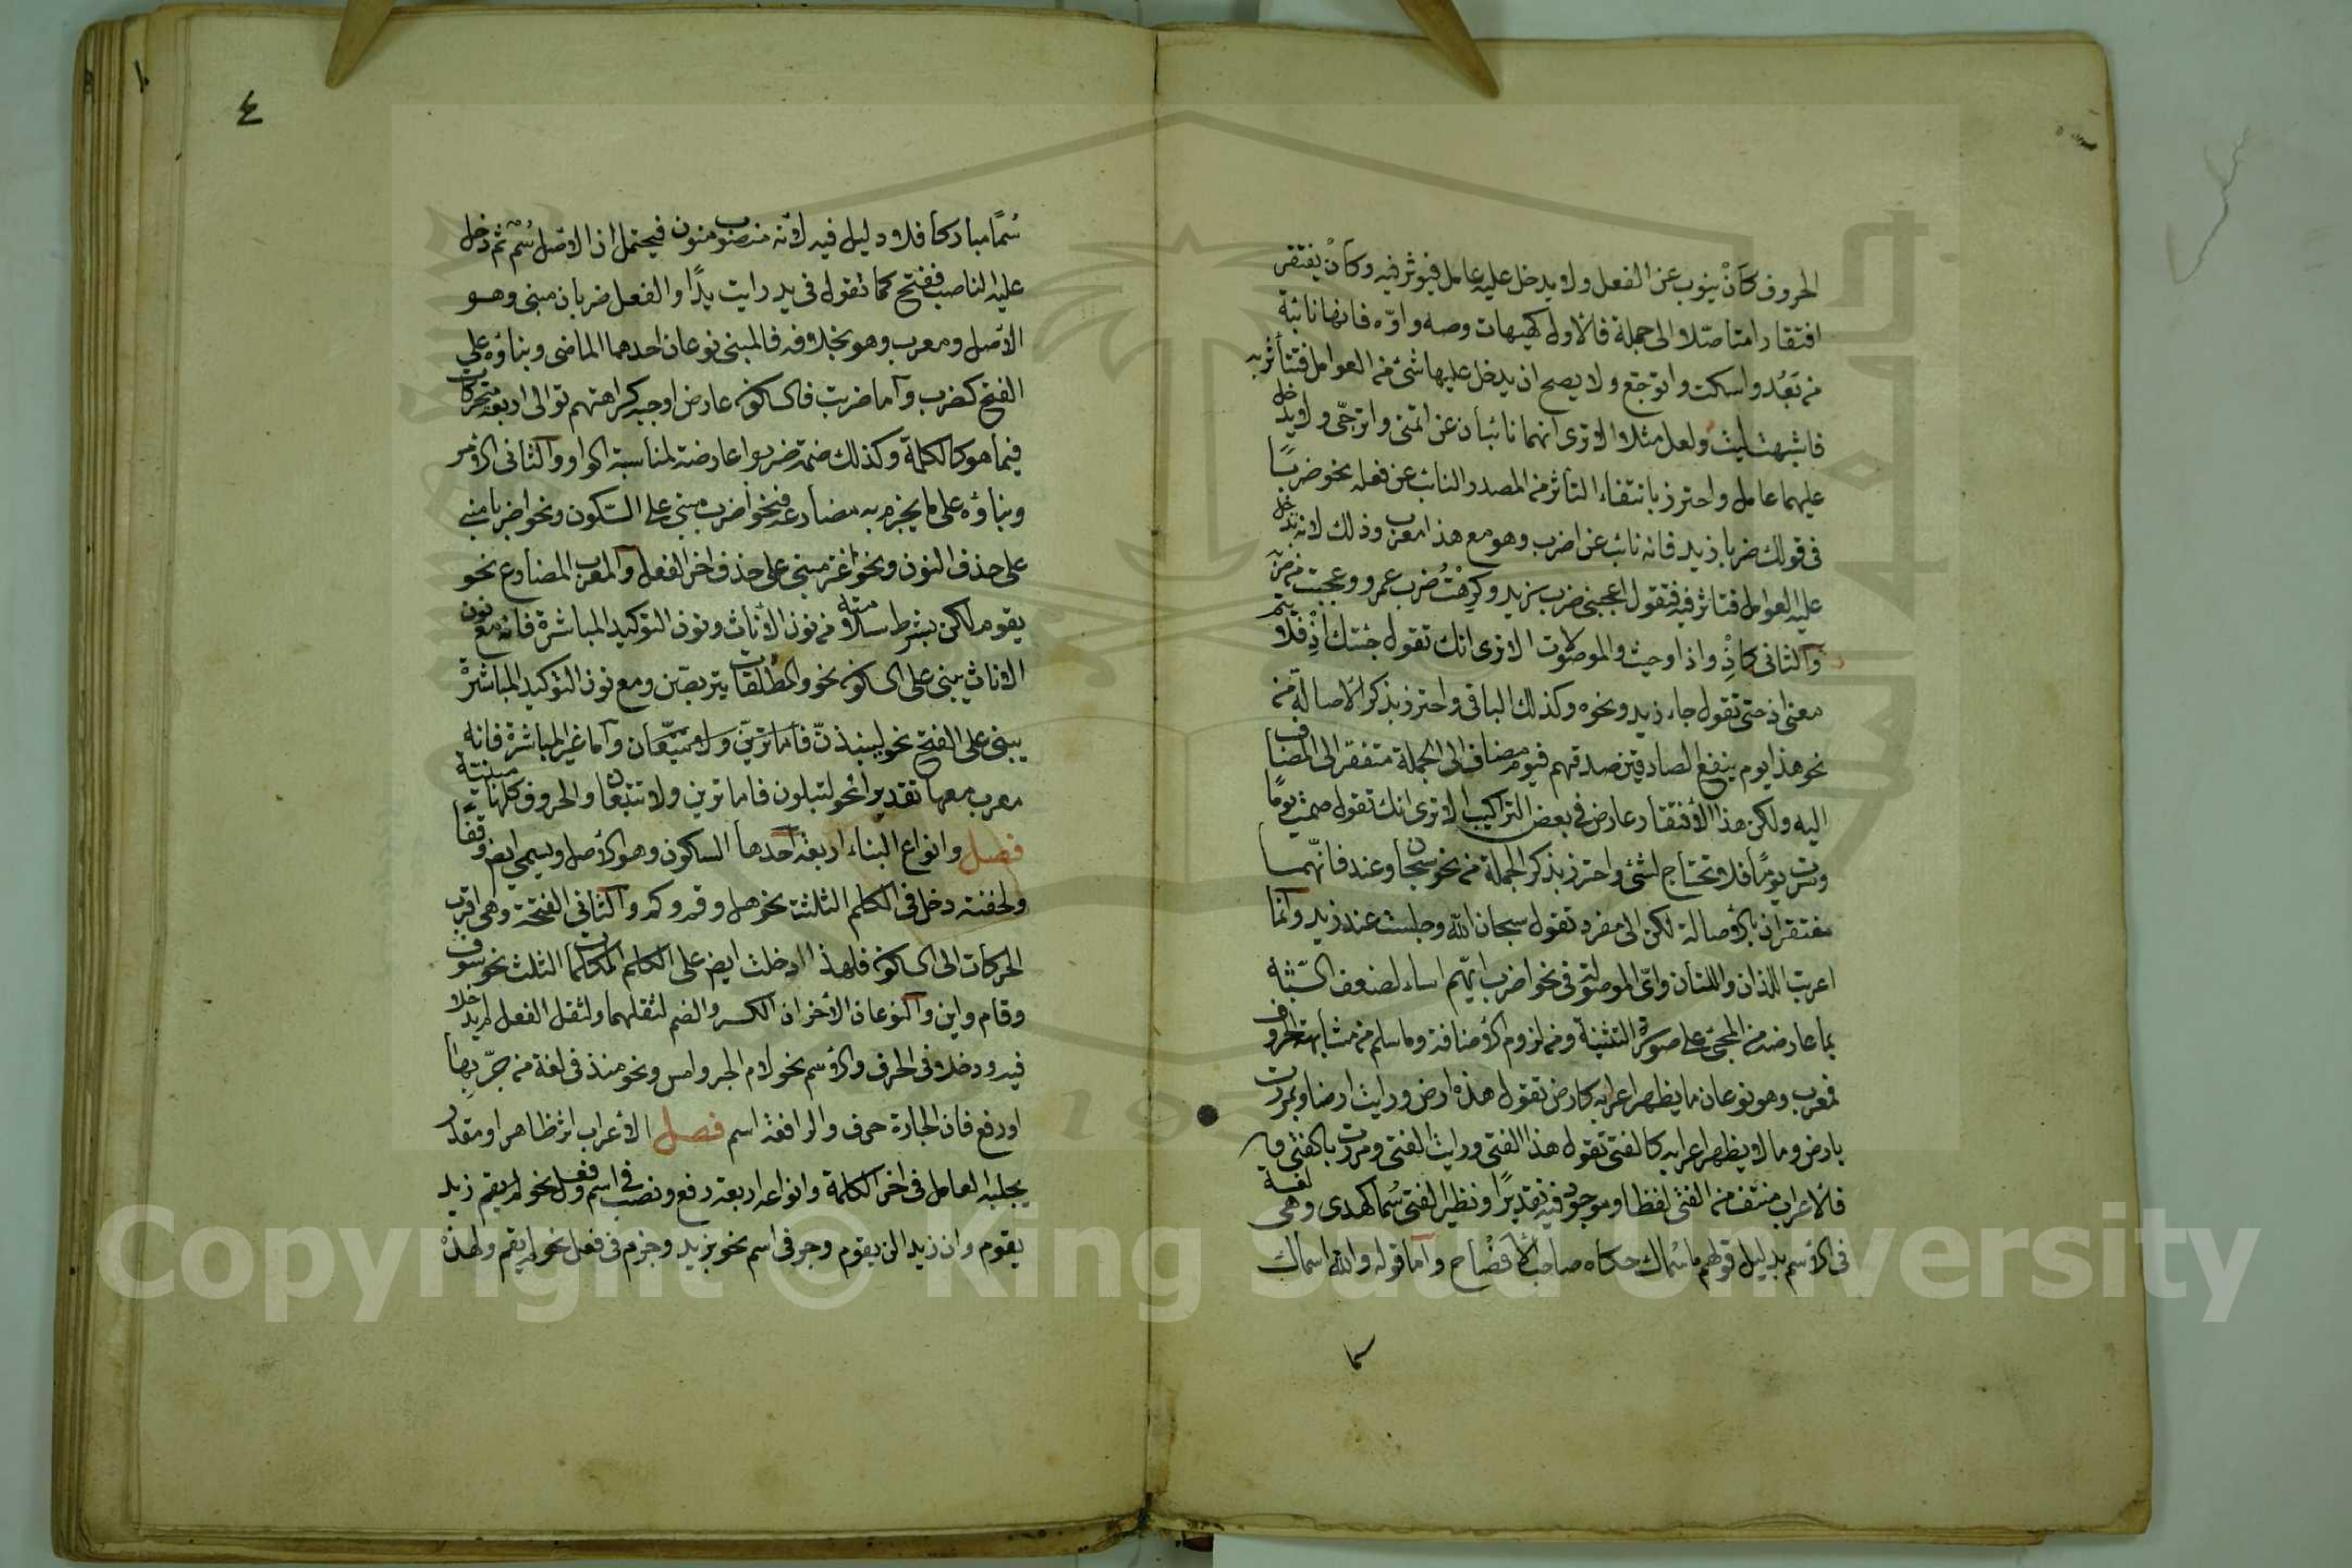 الحروف كأنْ ينوب عن الفعل ولا يدخل عليه عامل فيؤثر فيه وكأن يفتقر
افتقارا متأصلا الى جملة فالأول كهيهات وصه واوّه فانها نائبة
من بَعُد واسكت واتوجّع ولا يصح ان يدخل عليها شئ من العوامل فتتأثر به
فاشبهت ليت ولعل مثلا الا ترى انهما نائبان عن اتمنى واترجّى ولا يدخل
عليهما عامل واحترز بانتفاء التأثر من المصدر النائب عن فعله نحو ضربًا
فى قولك ضربا زيد فانه نائب عن اضرب وهو مع هذا معرب وذلك لانه تدخل
عليه العوامل فتاثر فيه فتقول اعجبنى ضرب زيد وكرهْتُ ضرب عمرو وعجبت من ضربه
والثانى كاذْ واذا وحيث والموصولات الا ترى انك تقول جئتك اذْ فلا يتم
معنى اذ حتى تقول جاء زيد ونحوه وكذلك الباقى واحترز بذكر الأصالة من
نحو هذا يوم ينفع الصادقين صدقهم فيوم مضاف الى الجملة متفقر الى المضاف
اليه ولكن هذا الأفتقار عارض فى بعض التراكيب الا ترى انك تقول صمت يومًا
وسرت يومًا فلا تحتاج لشئ واحترز بذكر الجملة من نحو سبحان وعند فانّهما
مفتقران بالأصالة لكن الى مفرد تقول سبحان الله وجلست عند زيد وانما
اعربت اللذان واللتان واىّ الموصولة فى نحو اضرب ايّهم اساء لضعف الشّبه
بما عارضه من المجئ على صورة التثنية ومن لزوم الأضافة وما سلم من مشابهة الحروف
فمعرب وهو نوعان ما يظهر اعرابه كارض تقول هذه ارض ورايت ارضا ومررت
بارض وما لا يظهر اعرابه كالفتى تقول هذا الفتى ورايت الفتى ومررت بالفتى
فالأعراب منتف من الفتى لفظا وموجود فيه تقديرًا ونظير الفتى سُما كهدى وهى لغة
فى الأسم بدليل قولهم ما سُماك حكاه صاحب الأفصاح واما قوله والله اسماك
سما
٤
سُمًا مباركا فلا دليل فيه لأنه منصوب منون فيحتمل ان الاصل سُمٌ ثم دخل
عليه الناصب ففتح كما تقول فى يد رايت يدًا والفعل ضربان مبنى وهو
الأصل ومعرب وهو بخلافه فالمبنى نوعان احدهما الماضى وبناؤه على
الفتح كضرب واما ضربت فالسكون عارض اوجبه كراهتهم توالى اربع متحركات
فيما هو كالكلمة وكذلك ضمة ضربوا عارضة لمناسبة الواو والثانى الأمر
وبناؤه على ما يجزم به مضارعه فنحو اضرب مبنى على السّكون ونحو اضربا مبنى
على حذف النون ونحو اغز مبنى على حذف اخر الفعل والمعرب المضارع نحو
يقوم لكن بشرط سلامته من نون الأناث ونون التوكيد المباشرة فانه مع نون
الاناث يبنى على السكون نحو والمطلقات يتربصن ومع نون التوكيد المباشرة
يبنى على الفتح نحو لينبذنّ فاما ترينّ ولا تتبّعان واما غير المباشرة فانه
معرب معها تقديرا نحو لتبلون فاما ترين ولا تتبعان والحروف كلها مبنيّة
فصل وانواع البناء اربعة احدها السكون وهو الأصل ويسمى ايض وقفًا
ولخفته دخل فى الكلم الثلثة نحو هل وقم وكم والثانى الفتحة وهى اقرب
الحركات الى السكون فلهذا دخلت ايض على الكلم الكلمات الثلث نحو سوف
وقام واين والنوعان الأخران الكسر والضم لثقلهما ولثقل الفعل لم يدخلا
فيه ودخلا فى الحرف والأسم نحو لام الجر وامس ونحو منذ فى لغة من جرّ بها
اورفع فان الجارة حرف والرافعة اسم فصل الأعراب اثر ظاهر او مقدر
يجلبه العامل فى اخر الكلمة وانواعه اربعة رفع ونصب فى اسم وفعل نحو لم يقم زيد
يقوم وان زيدا لن يقوم وجر فى اسم نحو بزيد وجزم فى فعل نحو لم يقم ولهذه
Copyright © King Saud University